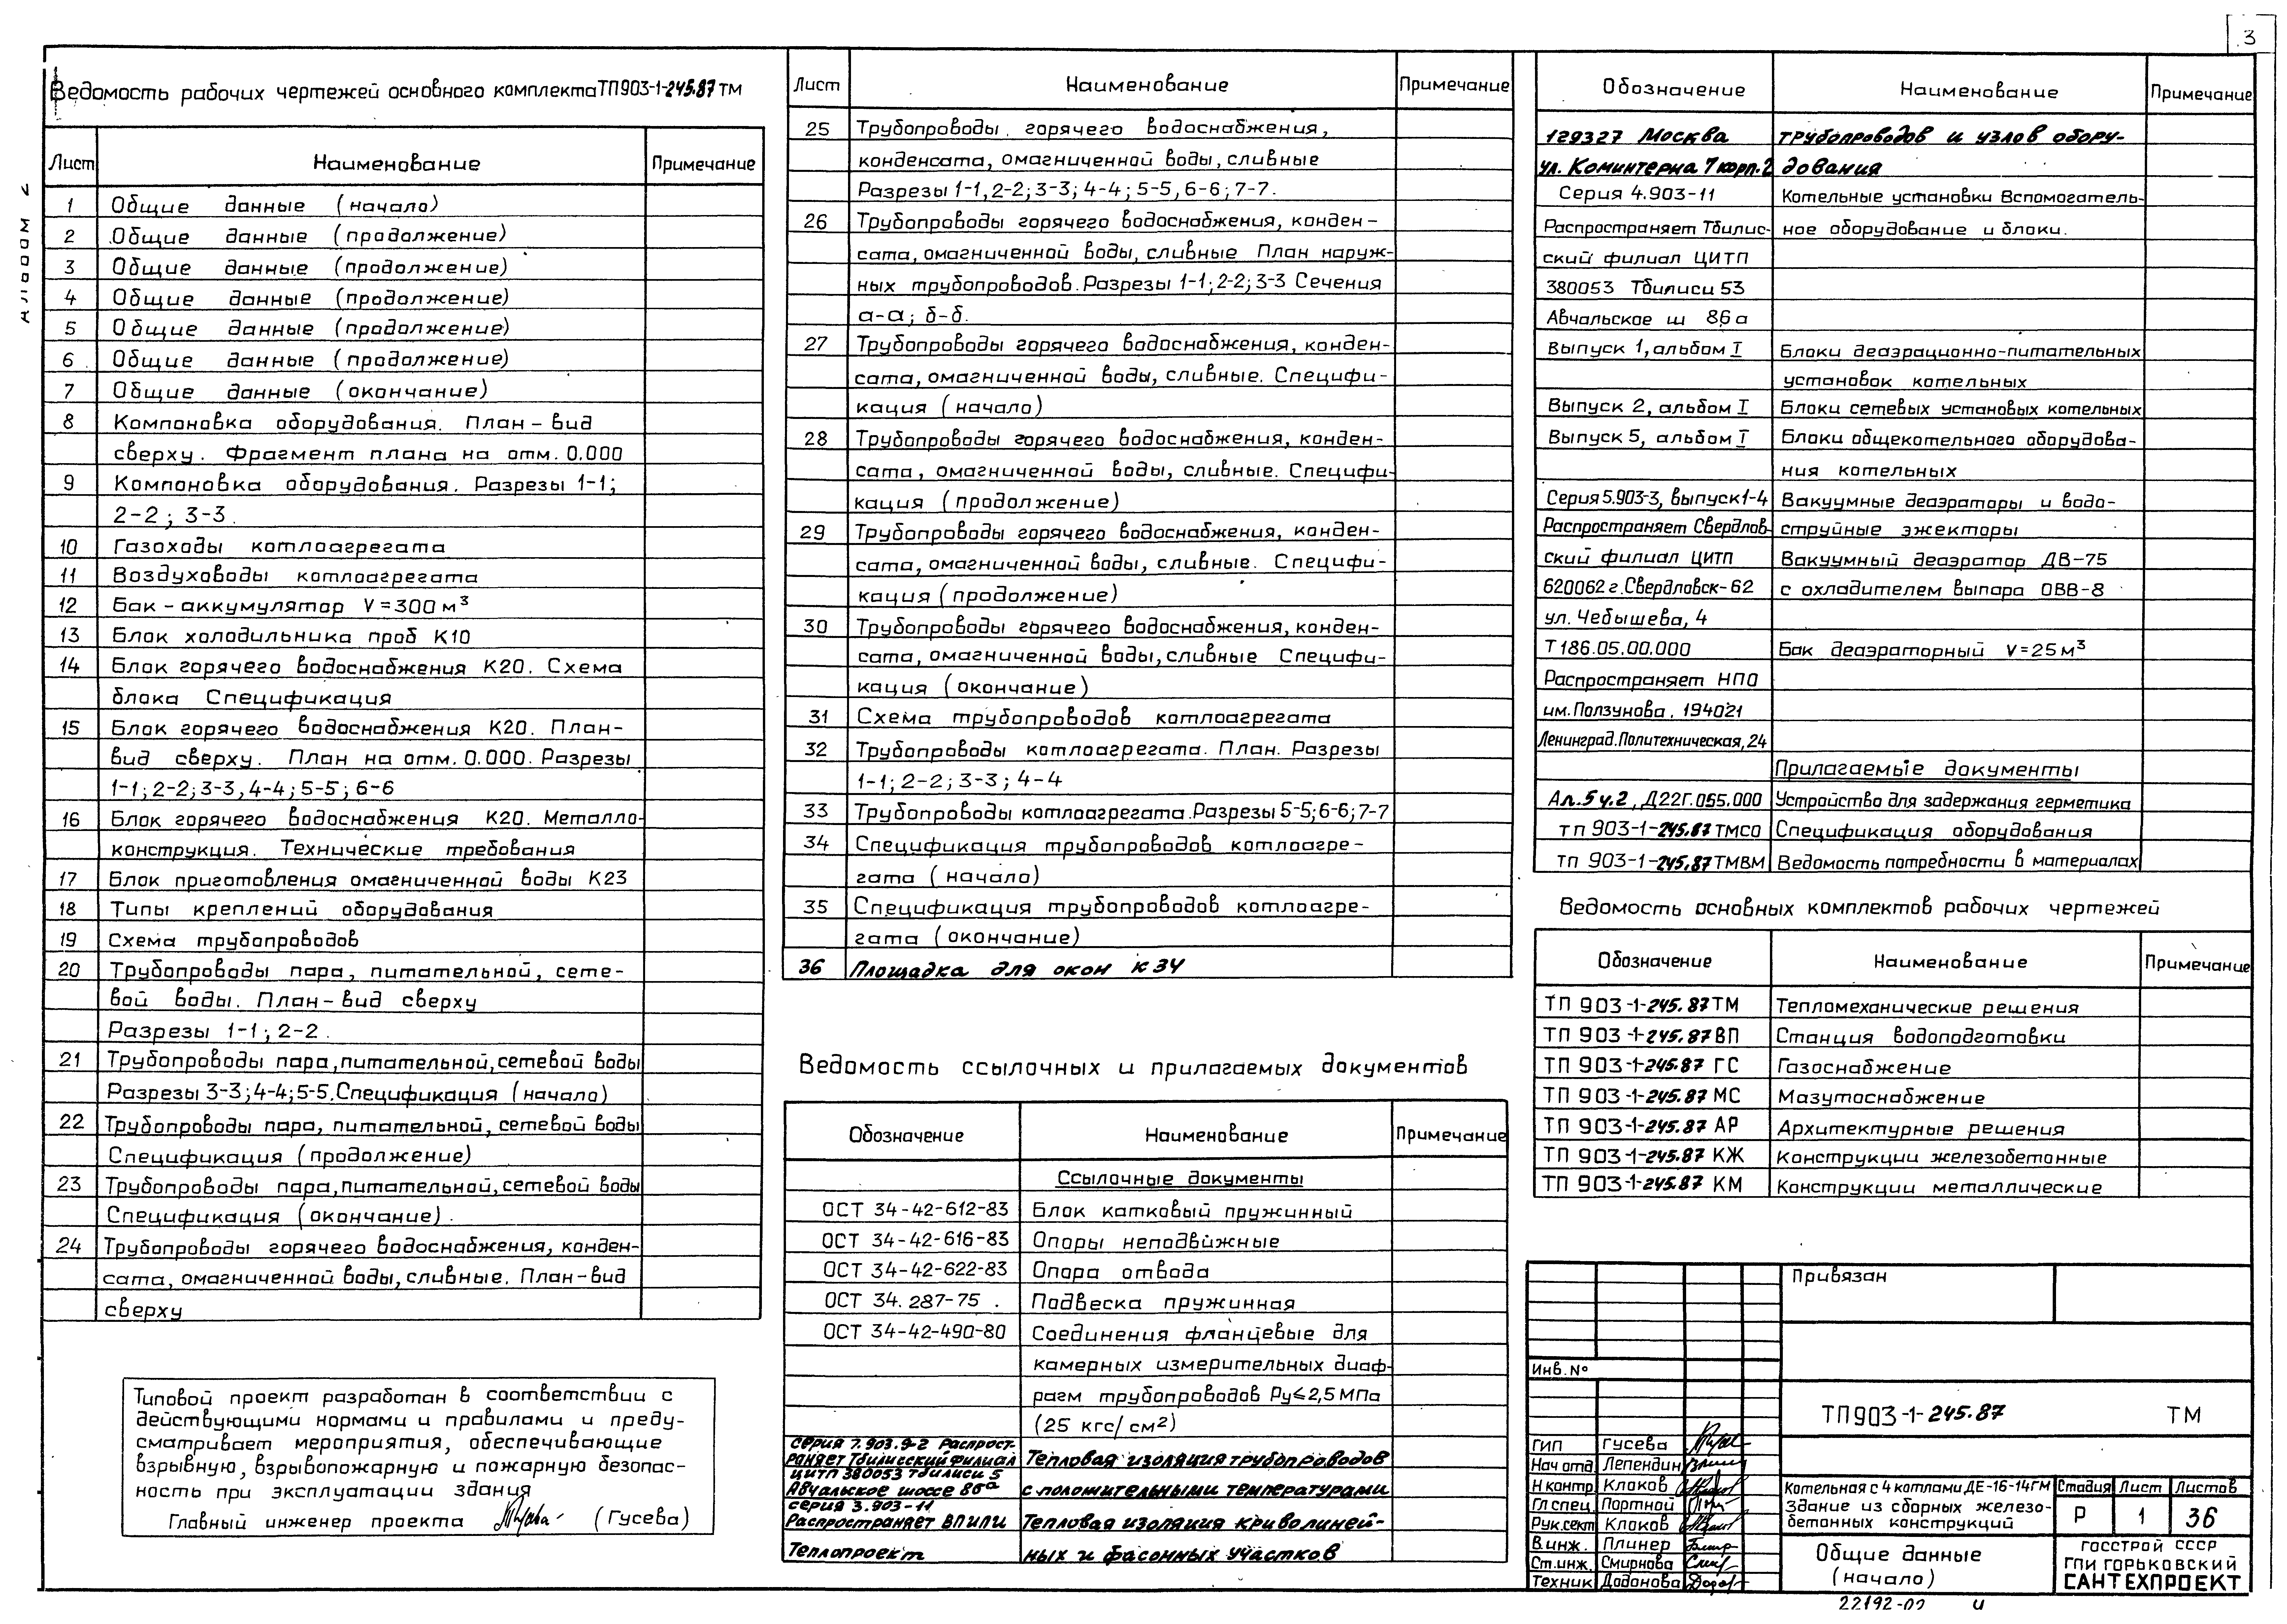 3
Альбом 2
Ведомость рабочих чертежей основного комплекта ТП903-1-245.87 ТМ
Лист Наименование Примечание
1 Общие данные (начало)
2 Общие данные (продолжение)
3 Общие данные (продолжение)
4 Общие данные (продолжение)
5 Общие данные (продолжение)
6 Общие данные (продолжение)
7 Общие данные (окончание)
8 Компоновка оборудования. План-вид
сверху. Фрагмент плана на отм. 0.000
9 Компоновка оборудования. Разрезы 1-1;
2-2; 3-3.
10 Газоходы котлоагрегата
11 Воздуховоды котлоагрегата
12 Бак-аккумулятор V=300 м³
13 Блок холодильника проб К10
14 Блок горячего водоснабжения К20. Схема
блока Спецификация
15 Блок горячего водоснабжения К20. План-
вид сверху. План на отм. 0.000. Разрезы
1-1; 2-2; 3-3, 4-4; 5-5; 6-6
16 Блок горячего водоснабжения К20. Металло-
конструкция. Технические требования
17 Блок приготовления омагниченной воды К23
18 Типы креплений оборудования
19 Схема трубопроводов
20 Трубопроводы пара, питательной, сете-
вой воды. План-вид сверху
Разрезы 1-1; 2-2.
21 Трубопроводы пара, питательной, сетевой воды
Разрезы 3-3; 4-4; 5-5. Спецификация (начало)
22 Трубопроводы пара, питательной, сетевой воды
Спецификация (продолжение)
23 Трубопроводы пара, питательной, сетевой воды
Спецификация (окончание).
24 Трубопроводы горячего водоснабжения, конден-
сата, омагниченной воды, сливные. План-вид
сверху
Типовой проект разработан в соответствии с
действующими нормами и правилами и преду-
сматривает мероприятия, обеспечивающие
взрывную, взрывопожарную и пожарную безопас-
ность при эксплуатации здания
Главный инженер проекта (Гусева)
Лист Наименование Примечание
25 Трубопроводы горячего водоснабжения,
конденсата, омагниченной воды, сливные
Разрезы 1-1, 2-2; 3-3; 4-4; 5-5, 6-6; 7-7.
26 Трубопроводы горячего водоснабжения, конден-
сата, омагниченной воды, сливные План наруж-
ных трубопроводов. Разрезы 1-1; 2-2; 3-3 Сечения
а-а; б-б.
27 Трубопроводы горячего водоснабжения, конден-
сата, омагниченной воды, сливные. Специфи-
кация (начало)
28 Трубопроводы горячего водоснабжения, конден-
сата, омагниченной воды, сливные. Специфи-
кация (продолжение)
29 Трубопроводы горячего водоснабжения, конден-
сата, омагниченной воды, сливные. Специфи-
кация (продолжение)
30 Трубопроводы горячего водоснабжения, конден-
сата, омагниченной воды, сливные Специфи-
кация (окончание)
31 Схема трубопроводов котлоагрегата
32 Трубопроводы котлоагрегата. План. Разрезы
1-1; 2-2; 3-3; 4-4
33 Трубопроводы котлоагрегата. Разрезы 5-5; 6-6; 7-7
34 Спецификация трубопроводов котлоагре-
гата (начало)
35 Спецификация трубопроводов котлоагре-
гата (окончание)
36 Площадка для окон К34
Ведомость ссылочных и прилагаемых документов
Обозначение Наименование Примечание
Ссылочные документы
ОСТ 34-42-612-83 Блок катковый пружинный
ОСТ 34-42-616-83 Опоры неподвижные
ОСТ 34-42-622-83 Опора отвода
ОСТ 34. 287-75 . Подвеска пружинная
ОСТ 34-42-490-80 Соединения фланцевые для
камерных измерительных диаф-
рагм трубопроводов Ру≤2,5 МПа
(25 кгс/см²)
серия 7.903.9-2 Распрост-
раняет Тбилисский филиал Тепловая изоляция трубопроводов
ЦИТП 380053 Тбилиси 5
Авчальское шоссе 86а с положительными температурами
серия 3.903-11
Распространяет ВПИПИ Тепловая изоляция криволиней-
Теплопроект ных и фасонных участков
Обозначение Наименование Примечание
129327 Москва трубопроводов и узлов обору-
ул. Коминтерна 7 корп.2 дования
Серия 4.903-11 Котельные установки Вспомогатель-
Распространяет Тбилис- ное оборудование и блоки.
ский филиал ЦИТП
380053 Тбилиси 53
Авчальское ш 86а
Выпуск 1, альбом I Блоки деаэрационно-питательных
установок котельных
Выпуск 2, альбом I Блоки сетевых установых котельных
Выпуск 5, альбом I Блоки общекотельного оборудова-
ния котельных
Серия 5.903-3, выпуск 1-4 Вакуумные деаэраторы и водо-
Распространяет Свердлов- струйные эжекторы
ский филиал ЦИТП Вакуумный деаэратор ДВ-75
620062 г. Свердловск-62 с охладителем выпара ОВВ-8
ул. Чебышева, 4
Т 186.05.00.000 Бак деаэраторный V=25 м³
Распространяет НПО
им. Ползунова, 194021
Ленинград. Политехническая, 24
Прилагаемые документы
Ал.5 ч.2, Д22Г.055.000 Устройство для задержания герметика
ТП 903-1-245.87 ТМСО Спецификация оборудования
ТП 903-1-245.87 ТМВМ Ведомость потребности в материалах
Ведомость основных комплектов рабочих чертежей
Обозначение Наименование Примечание
ТП 903-1-245.87 ТМ Тепломеханические решения
ТП 903-1-245.87 ВП Станция водоподготовки
ТП 903-1-245.87 ГС Газоснабжение
ТП 903-1-245.87 МС Мазутоснабжение
ТП 903-1-245.87 АР Архитектурные решения
ТП 903-1-245.87 КЖ Конструкции железобетонные
ТП 903-1-245.87 КМ Конструкции металлические
Привязан
Инв. №
ТП903-1-245.87 ТМ
ГИП Гусева
Нач отд. Лепендин
Н контр. Клоков
Гл спец. Портной
Рук.сект Клоков
В.инж. Плинер
Ст.инж. Смирнова
Техник Додонова
Котельная с 4 котлами ДЕ-16-14ГМ
Здание из сборных железо-
бетонных конструкций
Стадия Лист Листов
Р 1 36
Общие данные
(начало)
ГОССТРОЙ СССР
ГПИ ГОРЬКОВСКИЙ
САНТЕХПРОЕКТ
22192-02 4